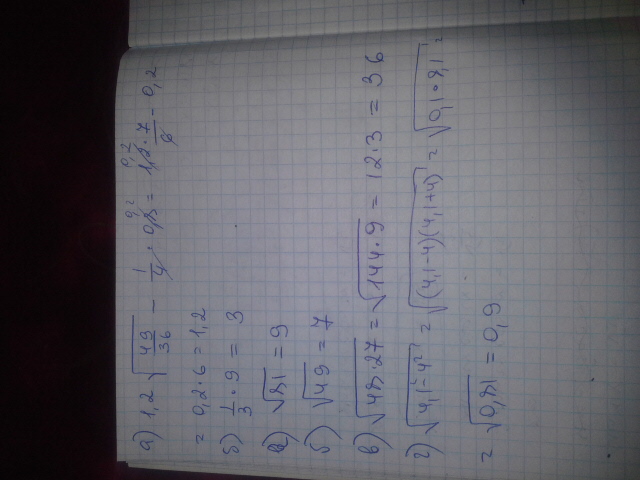 а) 1,2 √(49/36) − 1/4 · 0,8 = 1,2 · 7/6 − 0,2
= 0,2 · 6 = 1,2
б) 1/3 · 9 = 3
√81 = 9
б) √49 = 7
в) √48·27 = √144·9 = 12·3 = 36
г) √4,1² − 4² = √(4,1−4)(4,1+4) = √0,1 · 8,1 =
= √0,81 = 0,9